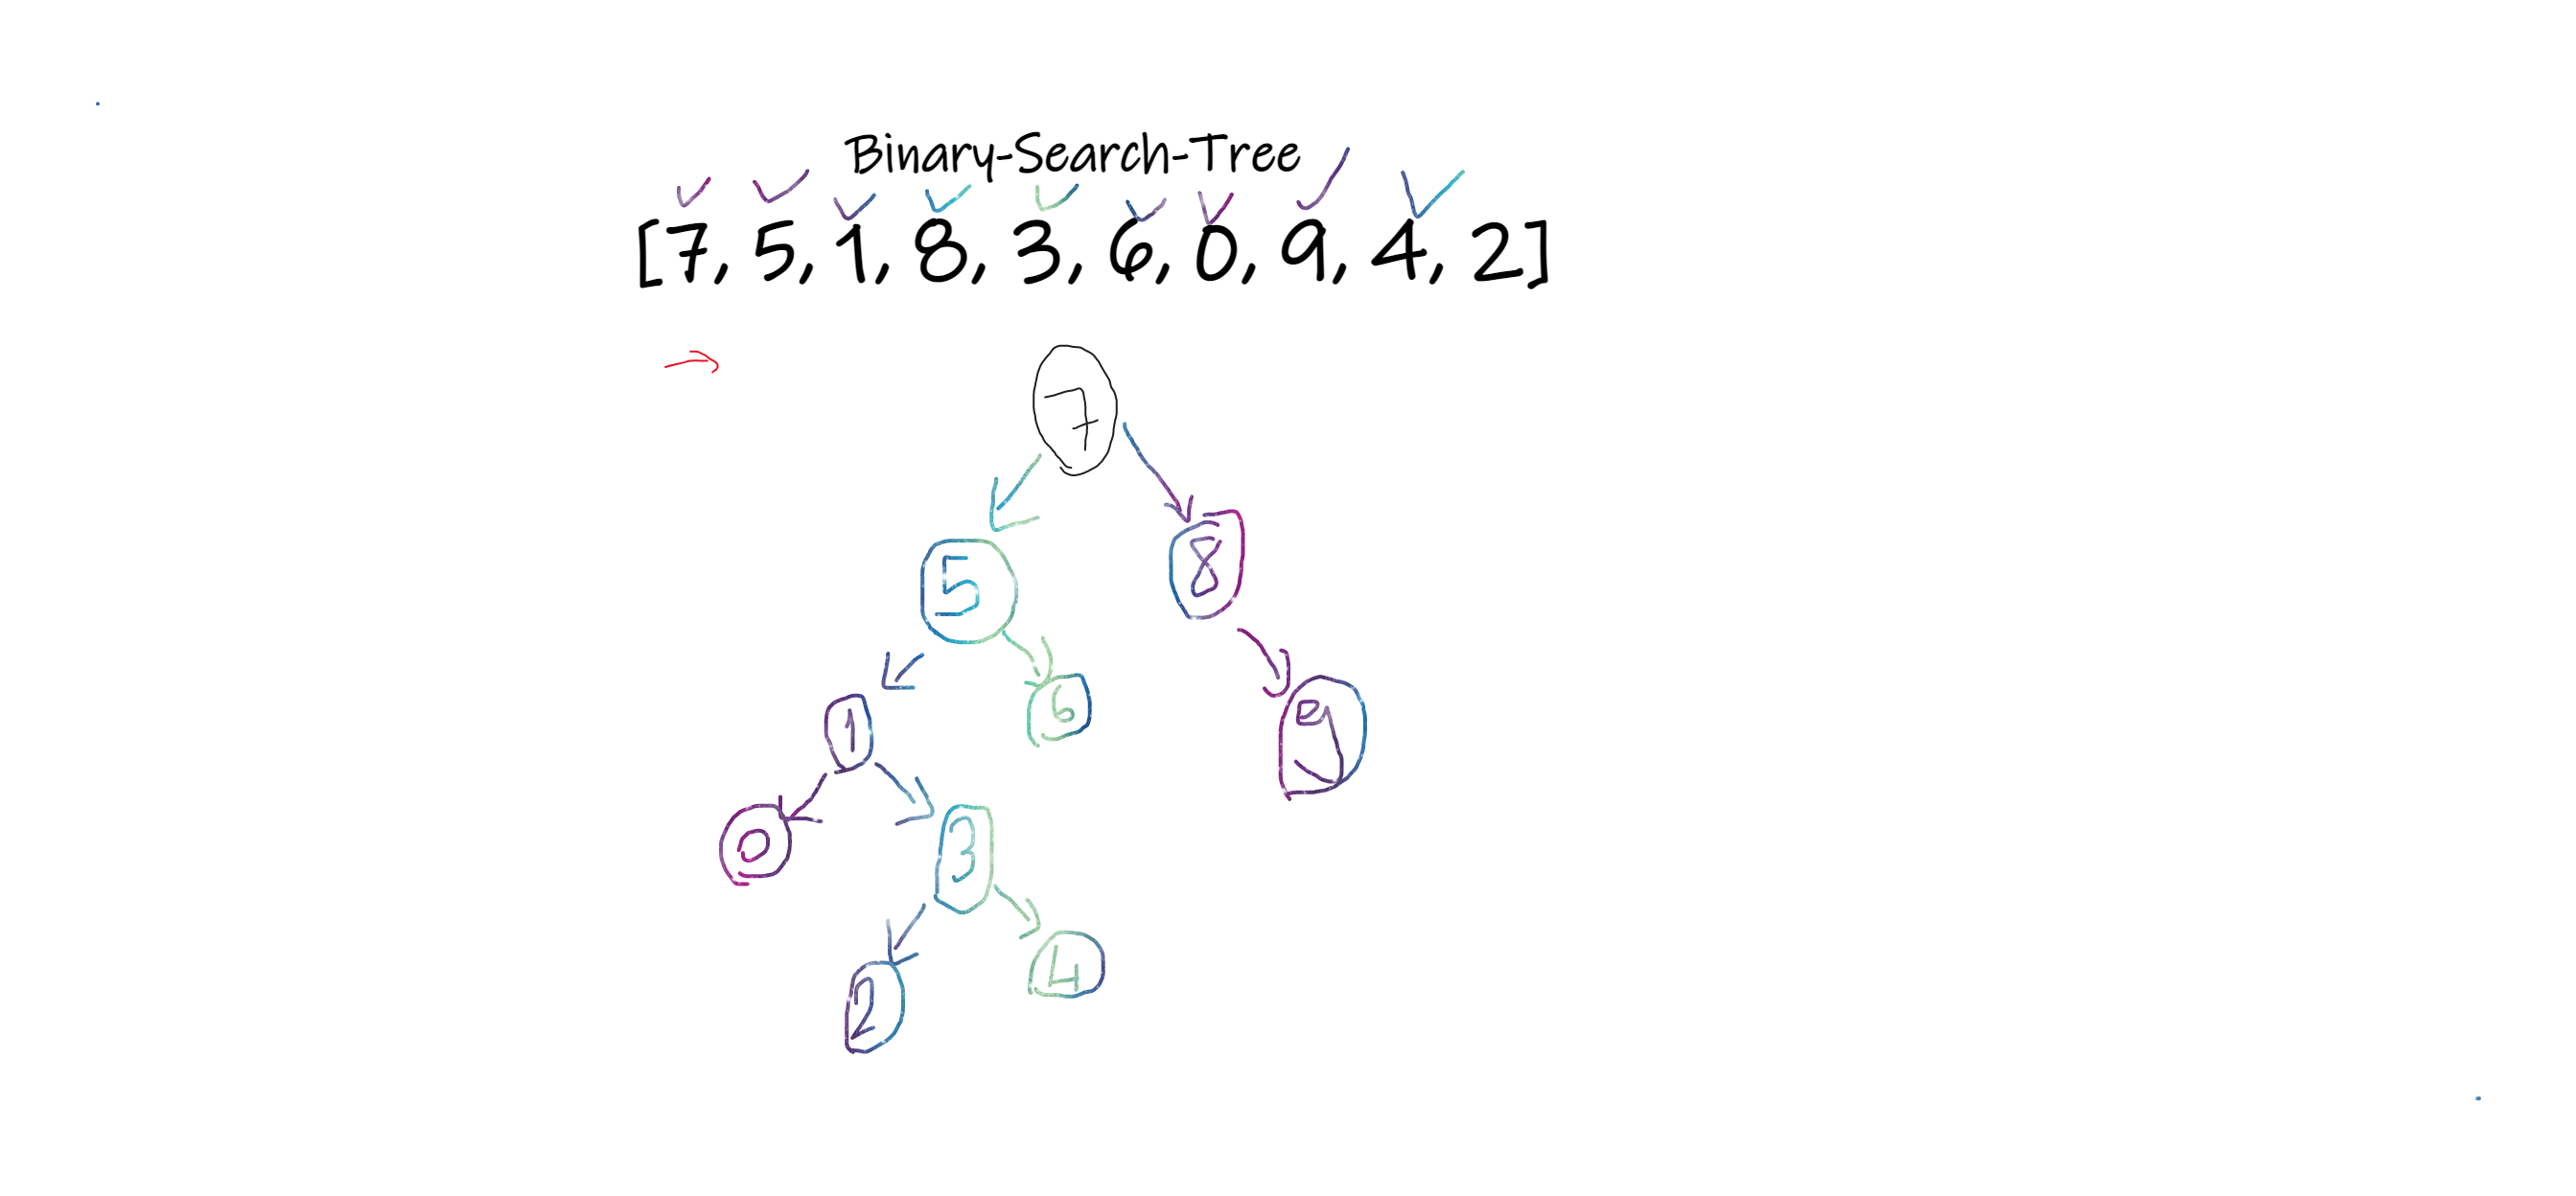 Binary-Search-Tree
[7, 5, 1, 8, 3, 6, 0, 9, 4, 2]
7
5 8
1 6 9
0 3
2 4